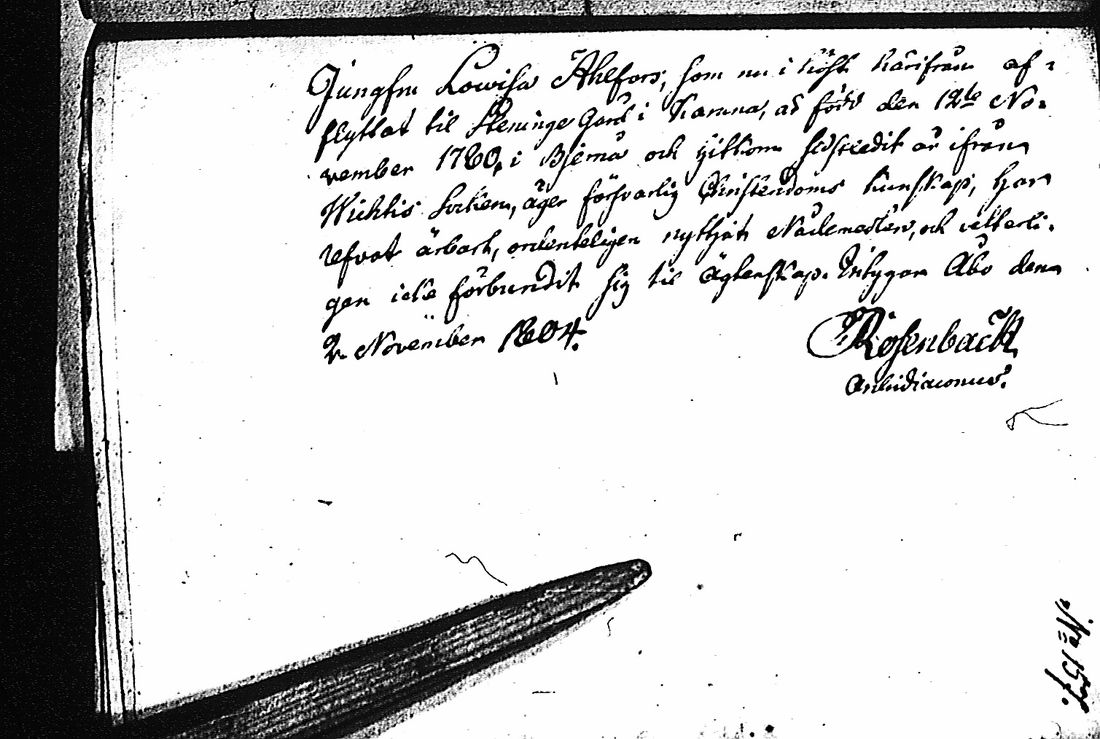 Jungfru Lowisa Ahlfors, som nu i höst härifrån af-
flyttat til Steninge Gård i Karuna, är född den 12te No-
vember 1780, i Bjerna och hitkom sidstledit år ifrån
Wichtis Sockn, äger försvarlig Christendoms kunskap, har
lefvat ärbart, ordenteligen nyttjat Nådemedlen, och vetterli-
gen icke förbundit sig til ägtenskap. Intygar Åbo den
2 November 1804.
Rosenback
Archidiaconus.
No 157.